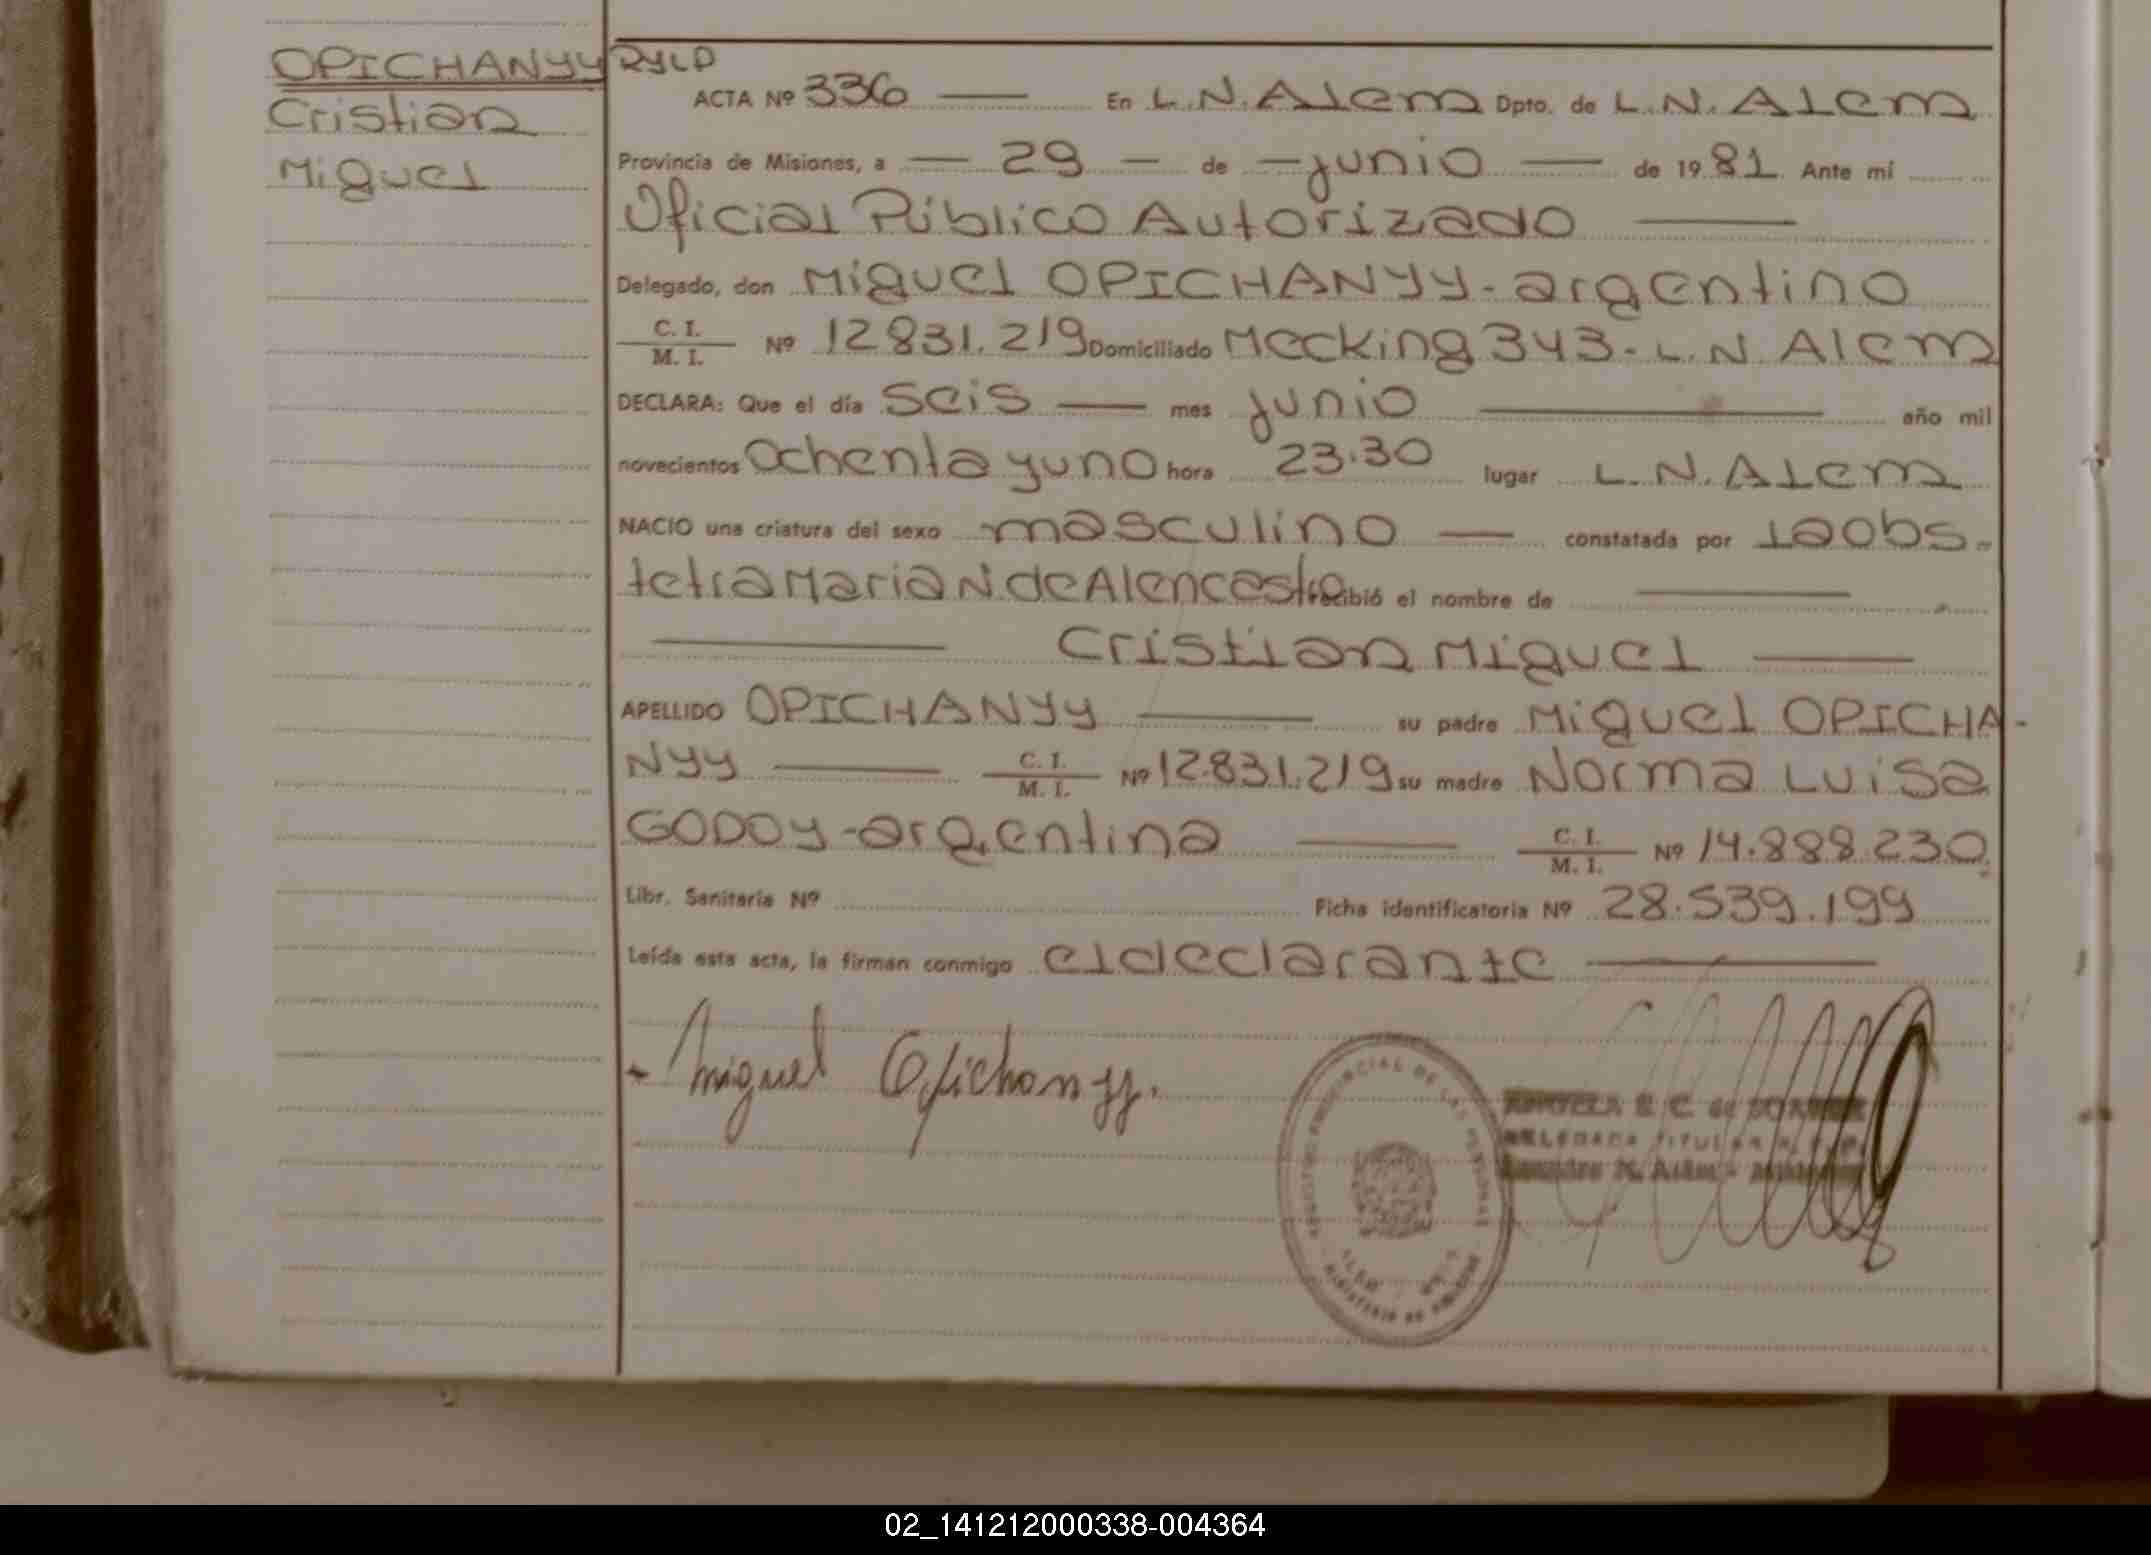 OPICHANYY
Cristian
Miguel
RyLP
ACTA Nº 336 — En L.N.Alem Dpto. de L.N.Alem
Provincia de Misiones, a — 29 — de — junio — de 1981 Ante mí
Oficial Público Autorizado —
Delegado, don Miguel OPICHANYY - argentino
C. I. / M. I. Nº 12.831.219 Domiciliado Mecking 343 - L.N Alem
DECLARA: Que el día seis — mes junio — año mil
novecientos ochenta y uno hora 23.30 lugar L.N.Alem
NACIO una criatura del sexo masculino — constatada por la obs-
tetra Maria N de Alencastro recibió el nombre de —
— Cristian Miguel —
APELLIDO OPICHANYY — su padre Miguel OPICHA-
NYY — C. I. / M. I. Nº 12.831.219 su madre Norma Luisa
GODOY - argentina — C. I. / M. I. Nº 14.888.230
Libr. Sanitaria Nº Ficha identificatoria Nº 28.539.199
Leída esta acta, la firman conmigo el declarante —
Miguel Opichanyy.
REGISTRO PROVINCIAL DE LAS PERSONAS
MINISTERIO DE GOBIERNO
E. C. de
DELEGADA TITULAR R. P. P.
Leandro N. Alem - Misiones
02_141212000338-004364